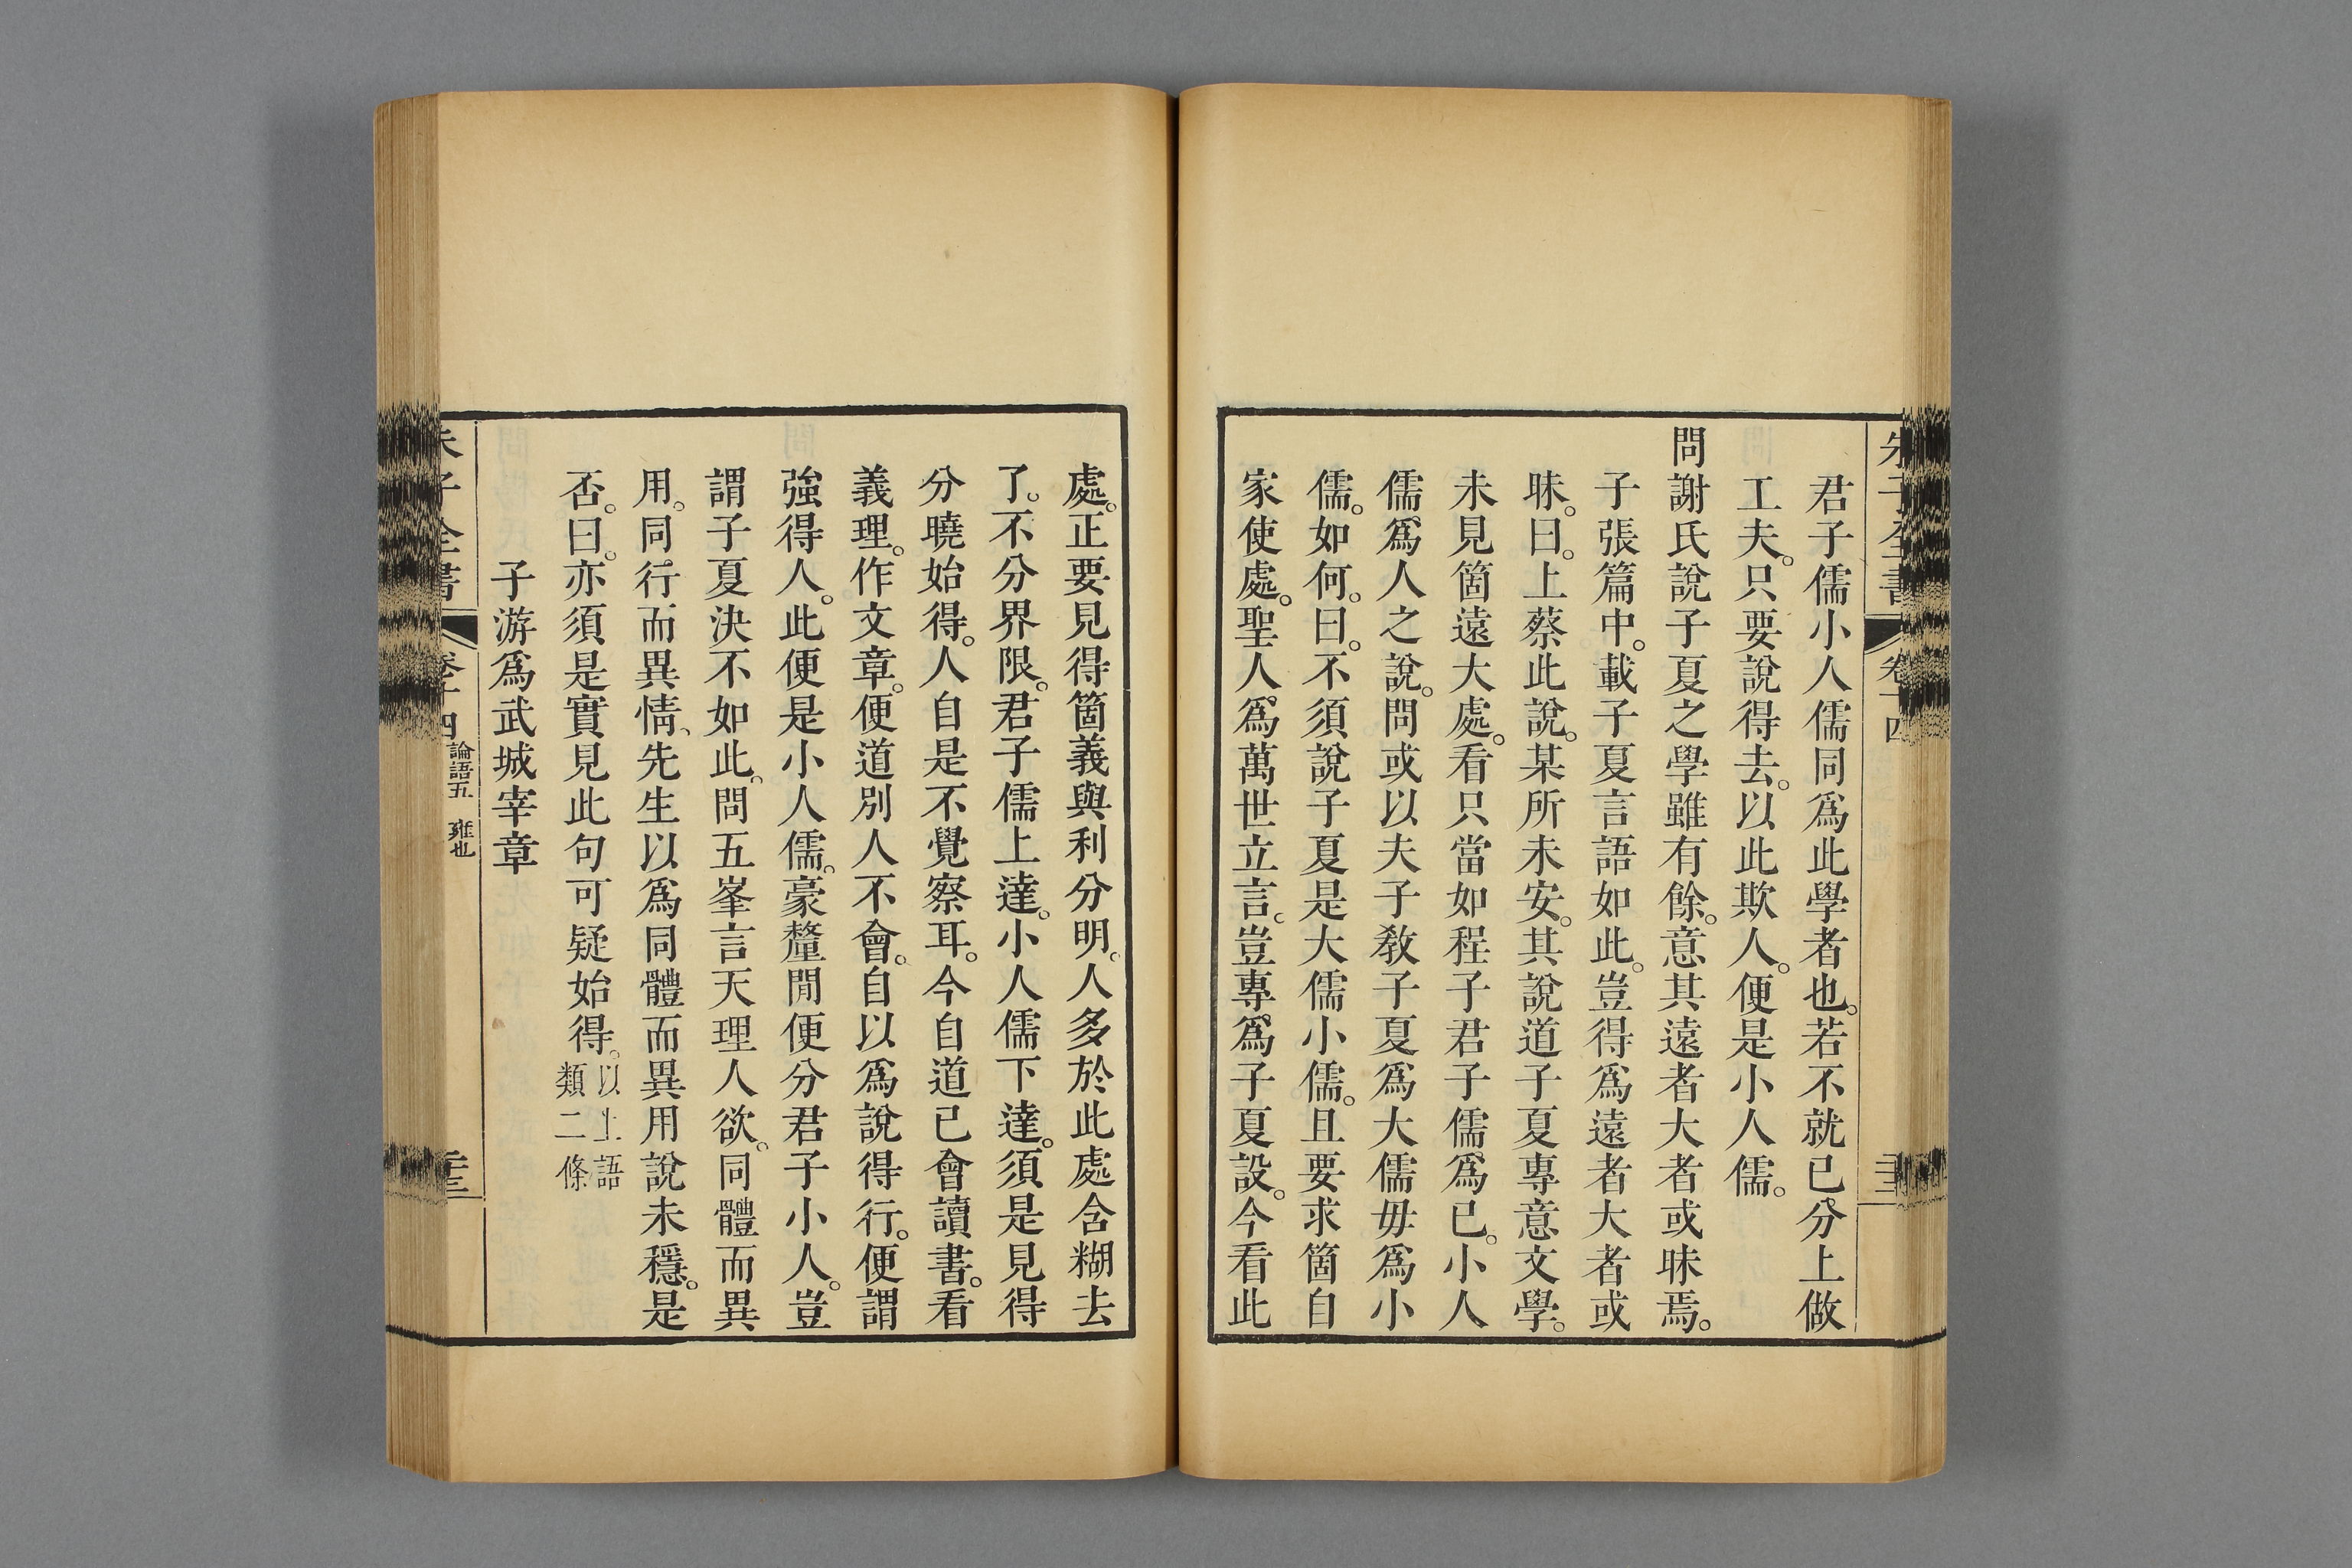 朱子全書 卷十四
君子儒小人儒同爲此學者也。若不就已分上做
工夫。只要說得去。以此欺人。便是小人儒。
問謝氏說子夏之學雖有餘。意其遠者大者或昧焉。
子張篇中。載子夏言語如此。豈得爲遠者大者或
昧。曰。上蔡此說。某所未安。其說道子夏專意文學。
未見箇遠大處。看只當如程子君子儒。爲已。小人
儒爲人之說。問或以夫子教子夏爲大儒毋爲小
儒。如何。曰。不須說子夏是大儒小儒。且要求箇自
家使處。聖人爲萬世立言。豈專爲子夏設。今看此
處。正要見得箇義與利分明。人多於此處含糊去
了。不分界限。君子儒上達。小人儒下達。須是見得
分曉始得。人自是不覺察耳。今自道已會讀書。看
義理。作文章。便道別人不會。自以爲說得行。便謂
強得人。此便是小人儒。豪釐閒便分君子小人。豈
謂子夏決不如此。問五峯言天理人欲。同體而異
用。同行而異情、先生以爲同體而異用說未穩。是
否。曰。亦須是實見此句可疑始得。以上語
類二條
子游爲武城宰章
朱子全書 卷十四 論語五 雍也